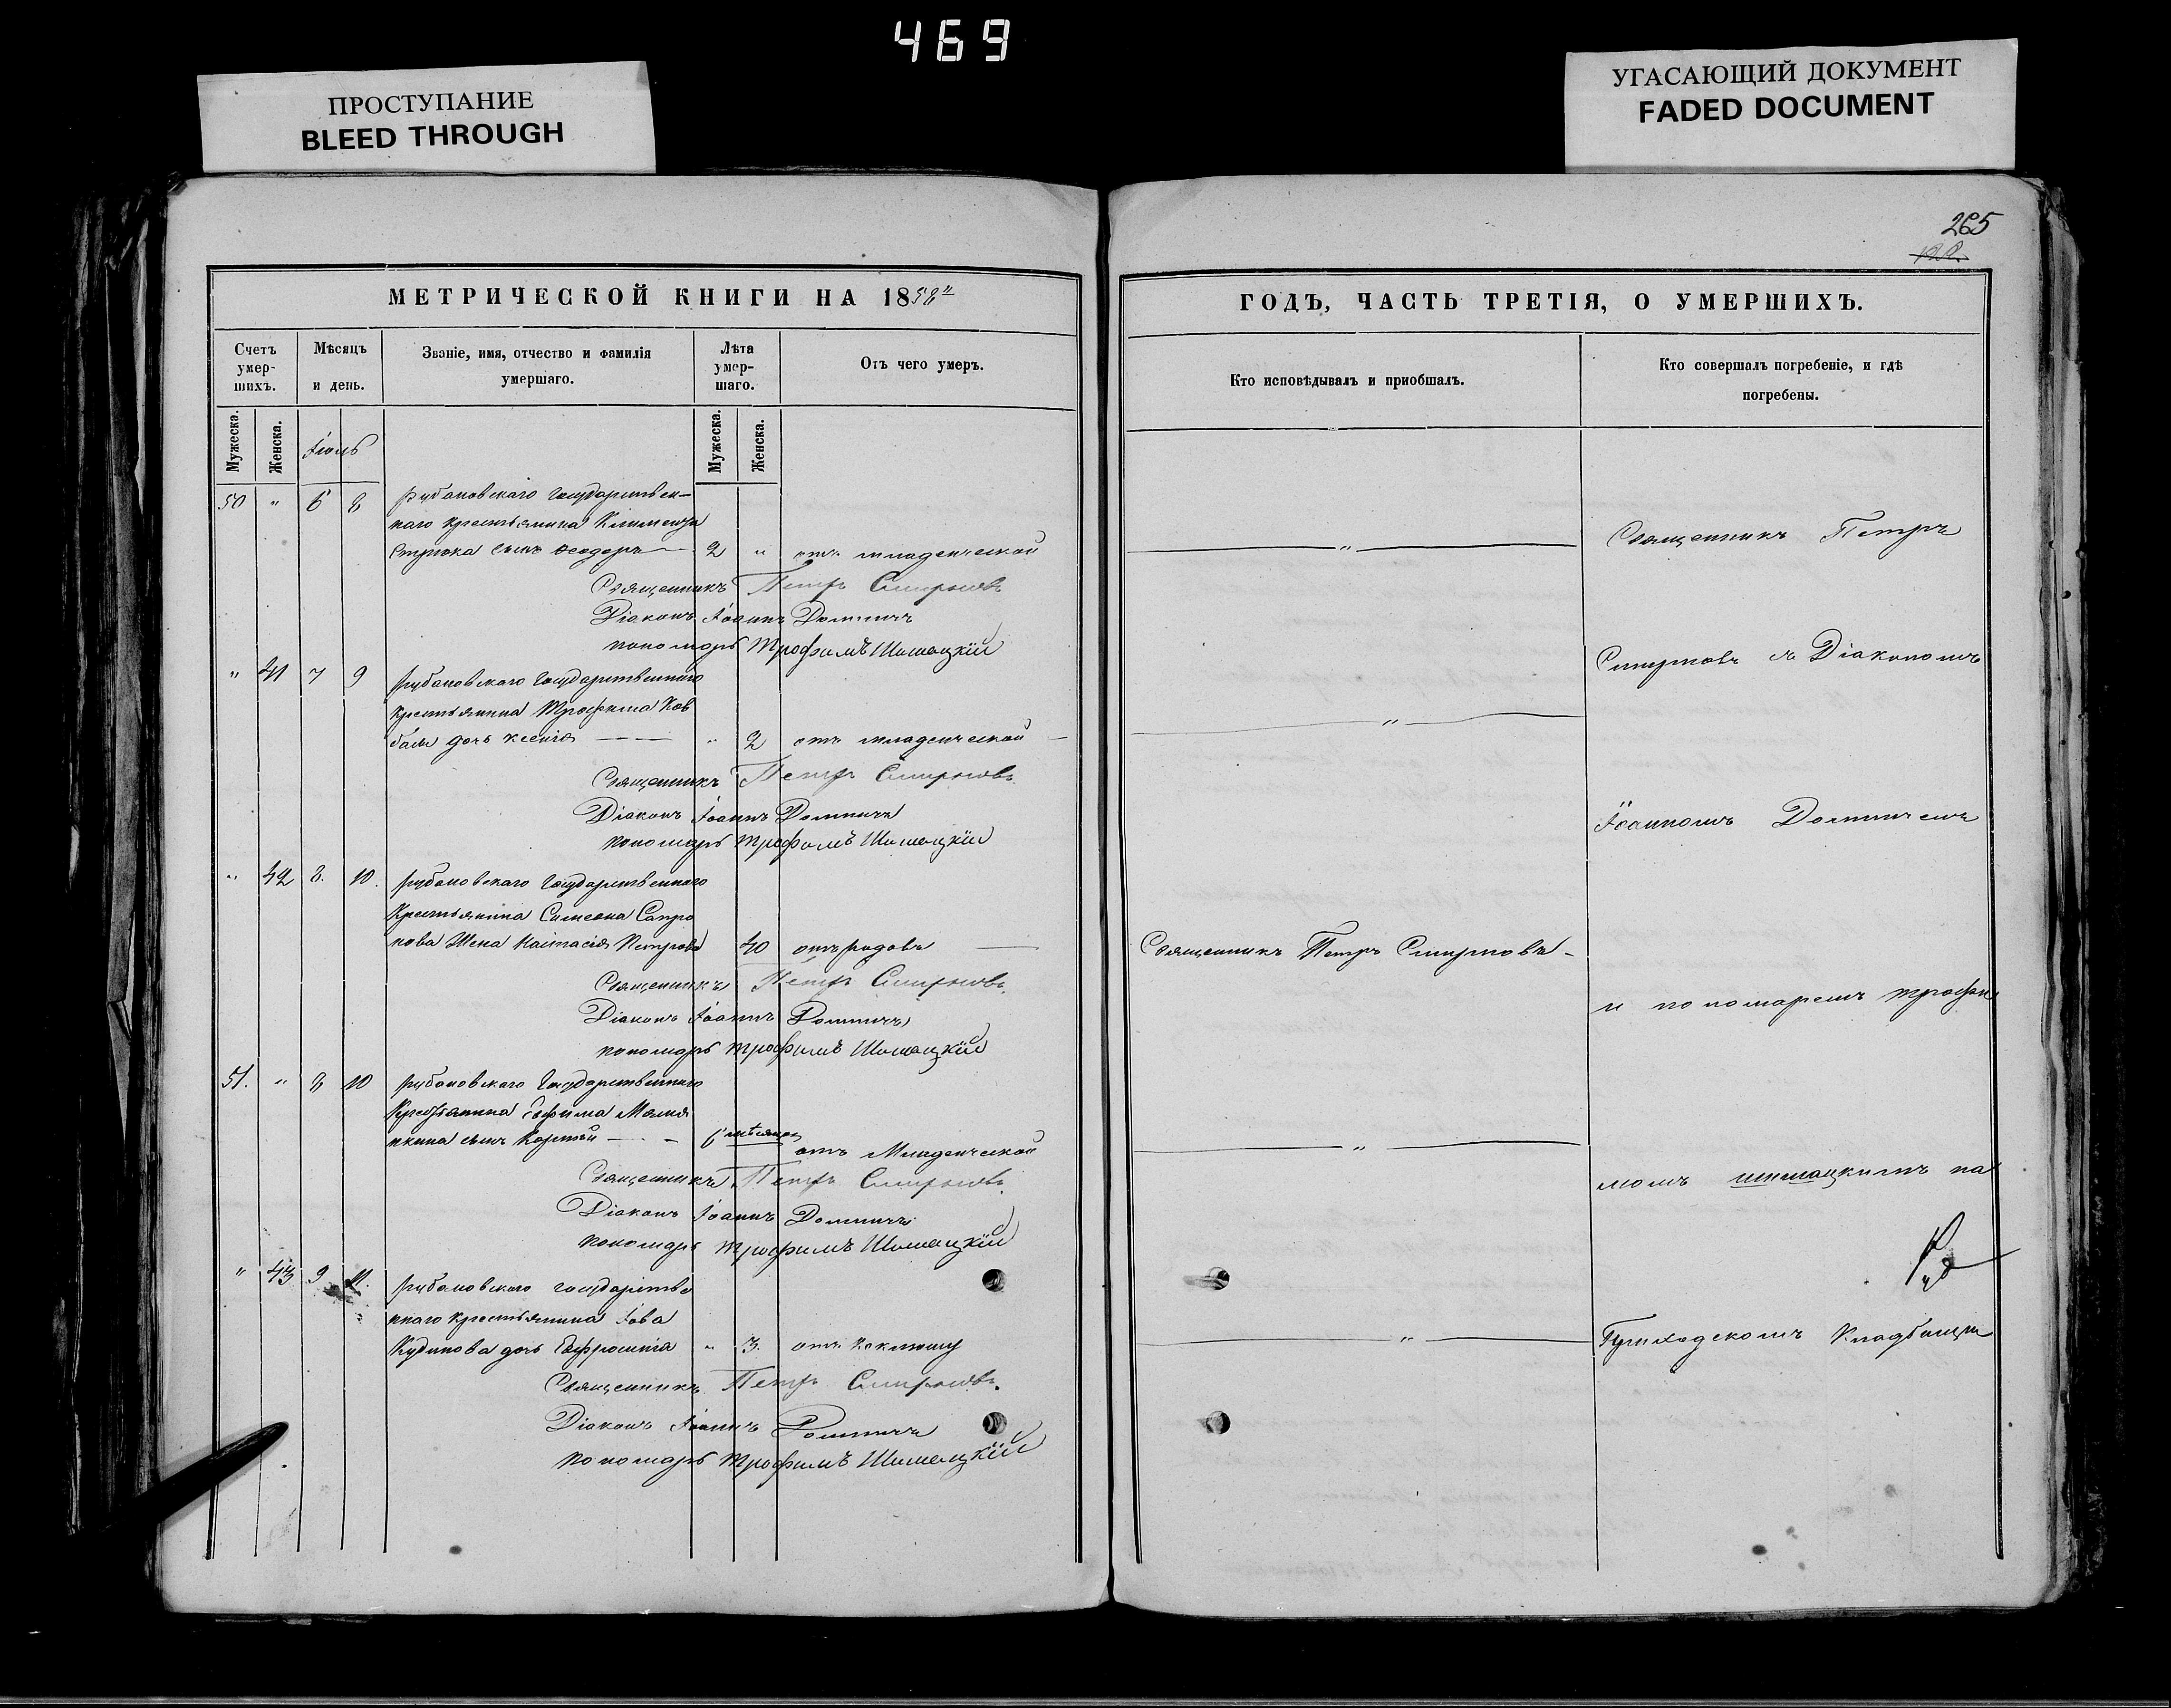 469
ПРОСТУПАНИЕ
BLEED THROUGH
УГАСАЮЩИЙ ДОКУМЕНТ
FADED DOCUMENT
265
МЕТРИЧЕСКОЙ КНИГИ НА 1858
Счетъ умер-шихъ.
Мѣсяцъ и день.
Званіе, имя, отчество и фамилія умершаго.
Лѣта умер-шаго.
Отъ чего умеръ.
Мужеска.
Женска.
Мужеска.
Женска.
Іюль
50 " 6 8 рубановскаго Государствен-
наго крестьянина Климента
сынъ Ѳеодоръ 2 " отъ младенческой
Священникъ Петръ Смирновъ
Діаконъ Іоаннъ
пономарь Трофимъ Шишацкій
" 41 7 9 рубановскаго Государственнаго
крестьянина Трофима Ков
баси дочь Ксенія " 2 отъ младенческой
Священникъ Петръ Смирновъ
Діаконъ Іоаннъ
пономарь Трофимъ Шишацкій
" 42 8. 10. рубановскаго Государственнаго
Крестьянина Симеона Сапро
нова Жена Настасія Петрова 40 отъ родовъ
Священникъ Петръ Смирновъ
Діаконъ Іоаннъ
пономарь Трофимъ Шишацкій
51. " 8 10 рубановскаго Государственнаго
Крестьянина Ефима
сынъ 6 мѣсяцов
отъ Младенческой
Священникъ Петръ Смирновъ
Діаконъ Іоаннъ
пономарь Трофимъ Шишацкій
" 43 9 11. рубановскаго государстве
ннаго крестьянина Іова
Кудинова дочь Ефросинія " 3. отъ коклюшу
Священникъ Петръ Смирновъ
Діаконъ Іоаннъ
пономарь Трофимъ Шишацкій
ГОДЪ, ЧАСТЬ ТРЕТІЯ, О УМЕРШИХЪ.
Кто исповѣдывалъ и приобшалъ.
Кто совершалъ погребеніе, и гдѣ погребены.
" Священникъ Петръ
Смирновъ съ Діакономъ
"
Іоанномъ
Священникъ Петръ Смирновъ
и пономаремъ Трофи
"
момъ шишацкимъ на
" Приходскомъ Кладбищѣ